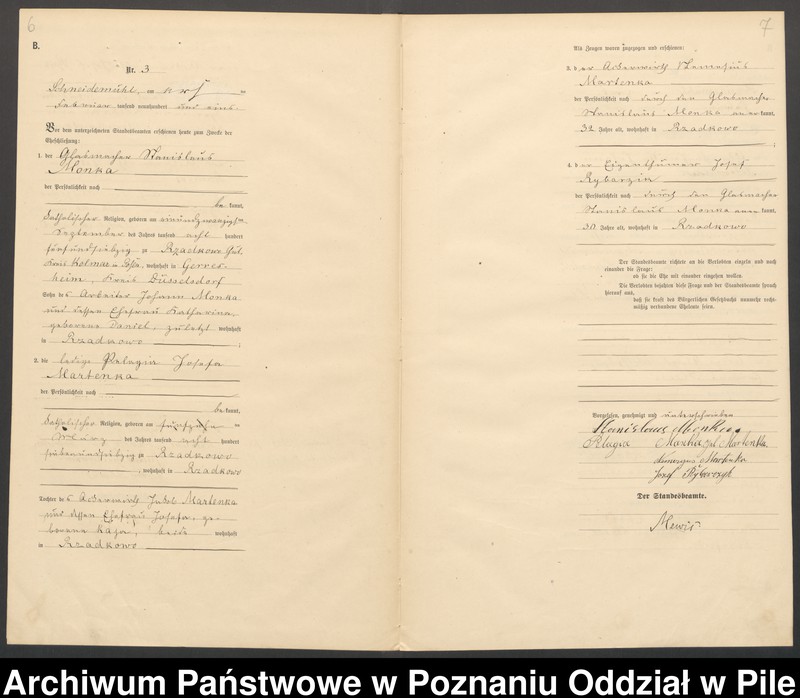 6
B.
Nr. 3
Schneidemühl, am
Februar tausend neunhundert und eins.
Vor dem unterzeichneten Standesbeamten erschienen heute zum Zwecke der
Eheschließung:
1. der Glasmacher Stanislaus
Monka
der Persönlichkeit nach
be kannt,
katholischer Religion, geboren am einundzwanzigsten
September des Jahres tausend acht hundert
fünfundsiebzig zu Rzadkowo Gut,
Kreis Kolmar i. Posen, wohnhaft in Gerres-
heim, Kreis Düsseldorf
Sohn des Arbeiter Johann Monka
und dessen Ehefrau Katharina,
geborene Daniel, zuletzt wohnhaft
in Rzadkowo ;
2. die ledige Pelagia Josefa
Martenka
der Persönlichkeit nach
be kannt,
katholischer Religion, geboren am fünfzehnten
März des Jahres tausend acht hundert
siebenundsiebzig zu Rzadkowo
, wohnhaft in Rzadkowo
Tochter des Ackerwirth Jakob Martenka
und dessen Ehefrau Josefa, ge-
borene Kaja, beide wohnhaft
in Rzadkowo
7
Als Zeugen waren zugezogen und erschienen:
3. der Ackerwirth
Martenka
der Persönlichkeit nach durch den Glasmacher
Stanislaus Monka anerkannt,
32 Jahre alt, wohnhaft in Rzadkowo
;
4. der Eigenthümer Josef
Rybarzyk
der Persönlichkeit nach durch den Glasmacher
Stanislaus Monka anerkannt,
30 Jahre alt, wohnhaft in Rzadkowo
Der Standesbeamte richtete an die Verlobten einzeln und nach
einander die Frage:
ob sie die Ehe mit einander eingehen wollen.
Die Verlobten bejahten diese Frage und der Standesbeamte sprach
hierauf aus,
daß sie kraft des Bürgerlichen Gesetzbuchs nunmehr recht-
mäßig verbundene Eheleute seien.
Vorgelesen, genehmigt und unterschrieben
Stanislaus Monka
Pelagia Monka geb. Martenka.
Martenka
Josef Rybarczyk
Der Standesbeamte.
Mewis.
Archiwum Państwowe w Poznaniu Oddział w Pile